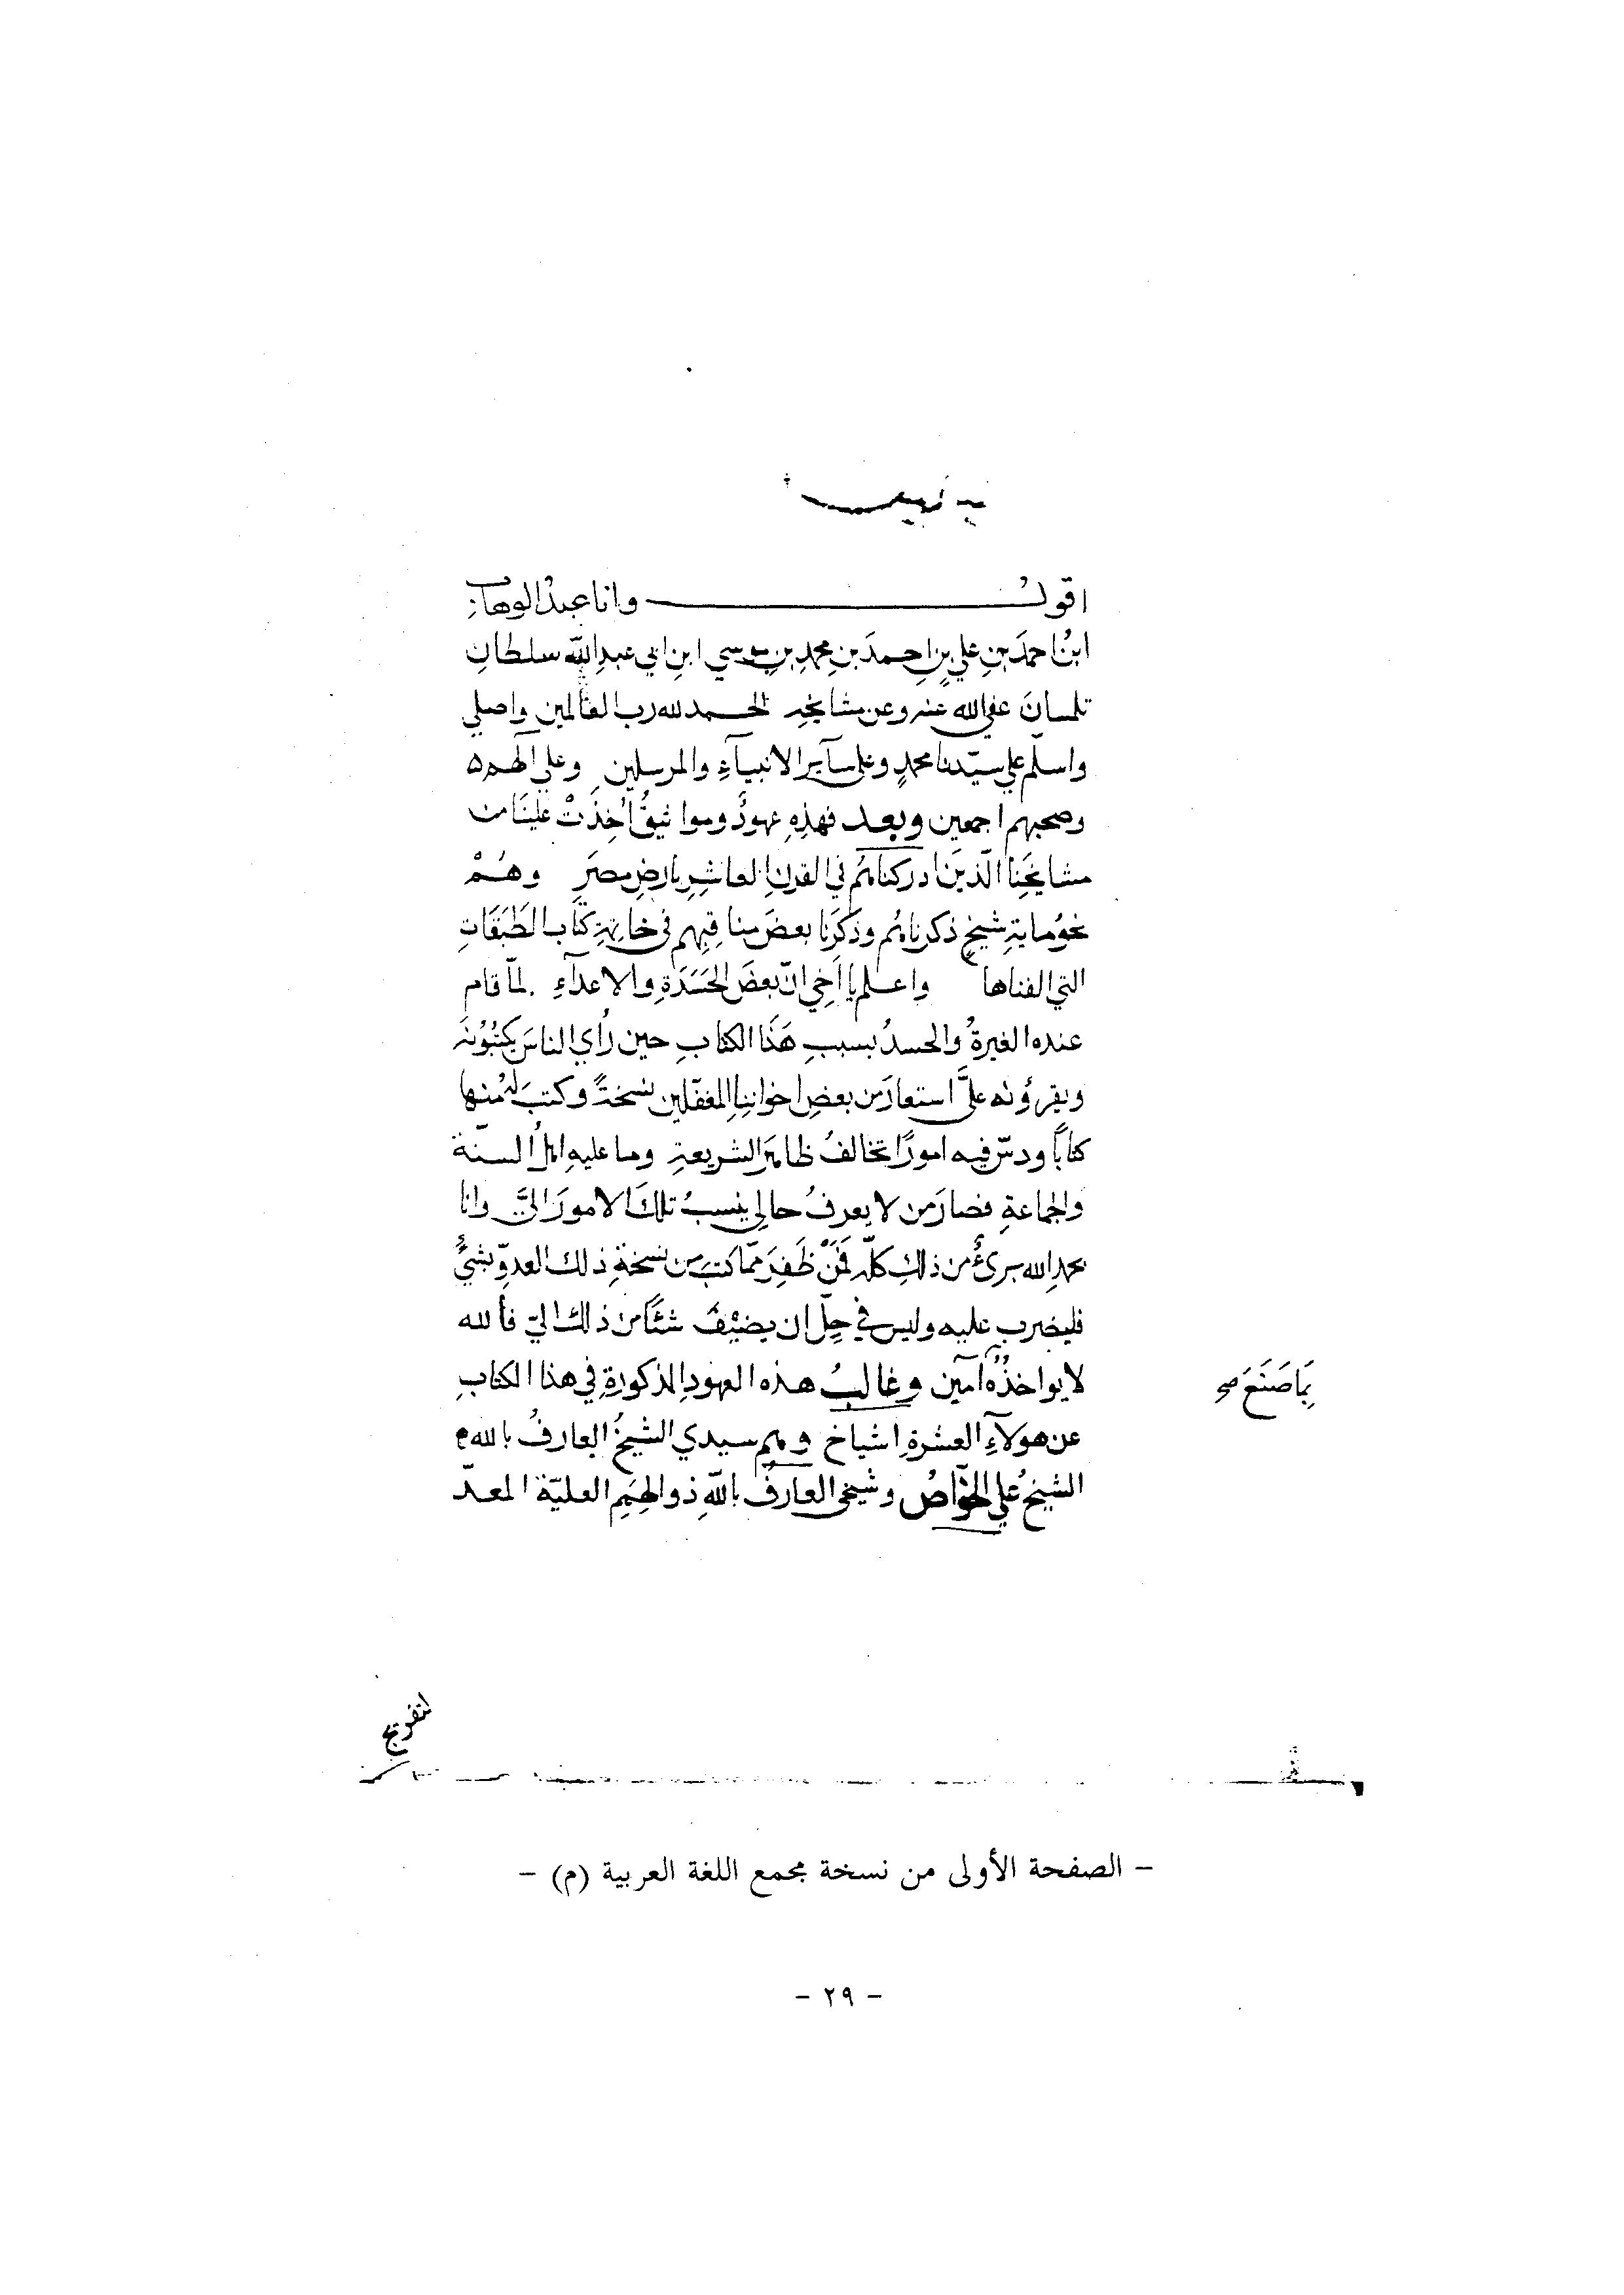 به نستعين
اقول وانا عبدُ الوهاب
ابنُ احمدَ بنِ علي بنِ احمدَ بنِ محمدِ بنِ موسي ابنِ ابي عبدِ اللّه سلطانِ
تلمسانَ عفي الله عنه وعن مشايخهِ الحمد لله رب العالمين واصلي
واسلّم علي سيّدنا محمدٍ وعلى سآيرِ الانبيآءِ والمرسلين وعلي آلهم
وصحبهم اجمعين وبعد فهذهِ عهودٌ ومواثيقُ اُخِذَتْ علينَا من
مشايخِنِا الّذينَ ادركناهُم في القرنِ العاشِرِ بارضِ مصرَ وهُمْ
نحوُ مايةِ شيخٍ ذكرناهُم وذكَرنا بعضَ مناقِبِهم في خاتمةِ كتاب الطَبَقَاتِ
التي الفناها واعلم يا اَخي انّ بعضَ الحَسَدَةِ والاعدآءِ لمّا قام
عنده الغيرةُ والحسدُ بسببِ هَذَا الكتابِ حين رأي الناسَ يكتبُونَه
ويقرؤنه علىَّ استعارَ من بعضِ اخوانِنا المغفّلين نسخةً وكتبَ لهُ منها
كتاباً ودسّ فيه امورًا تخالفُ ظاهرَ الشريعةِ وما عليهِ اهلُ السنّة
والجماعةِ فصارَ من لا يعرفُ حالي ينسبُ تلكَ الامورَ اليَّ وانا
بحمدِ الله برئٌ من ذلكِ كلّه فَمَنْ ظَفِرَ ممّا كتبَ من نسخةِ ذلك العدوِّ بشئٍ
فليضرب عليه وليس في حِلٍّ ان يضيْفَ شئًا من ذلك اليّ فالله
لا يواخذُه آمين وغالبُ هذه العهودِ المذكورةِ في هذا الكتابِ
بِمَا صَنَعَ صح
عن هولآءِ العشرةِ اشياخ وهم سيدي الشيخُ العارفُ بالله
الشيخُ علي الخوّاصُ وشيخي العارفُ باللّهِ ذو الهِمَمِ العليّة المعدّ
لتفريج
– الصفحة الأولى من نسخة مجمع اللغة العربية (م) –
– ٢٩ –